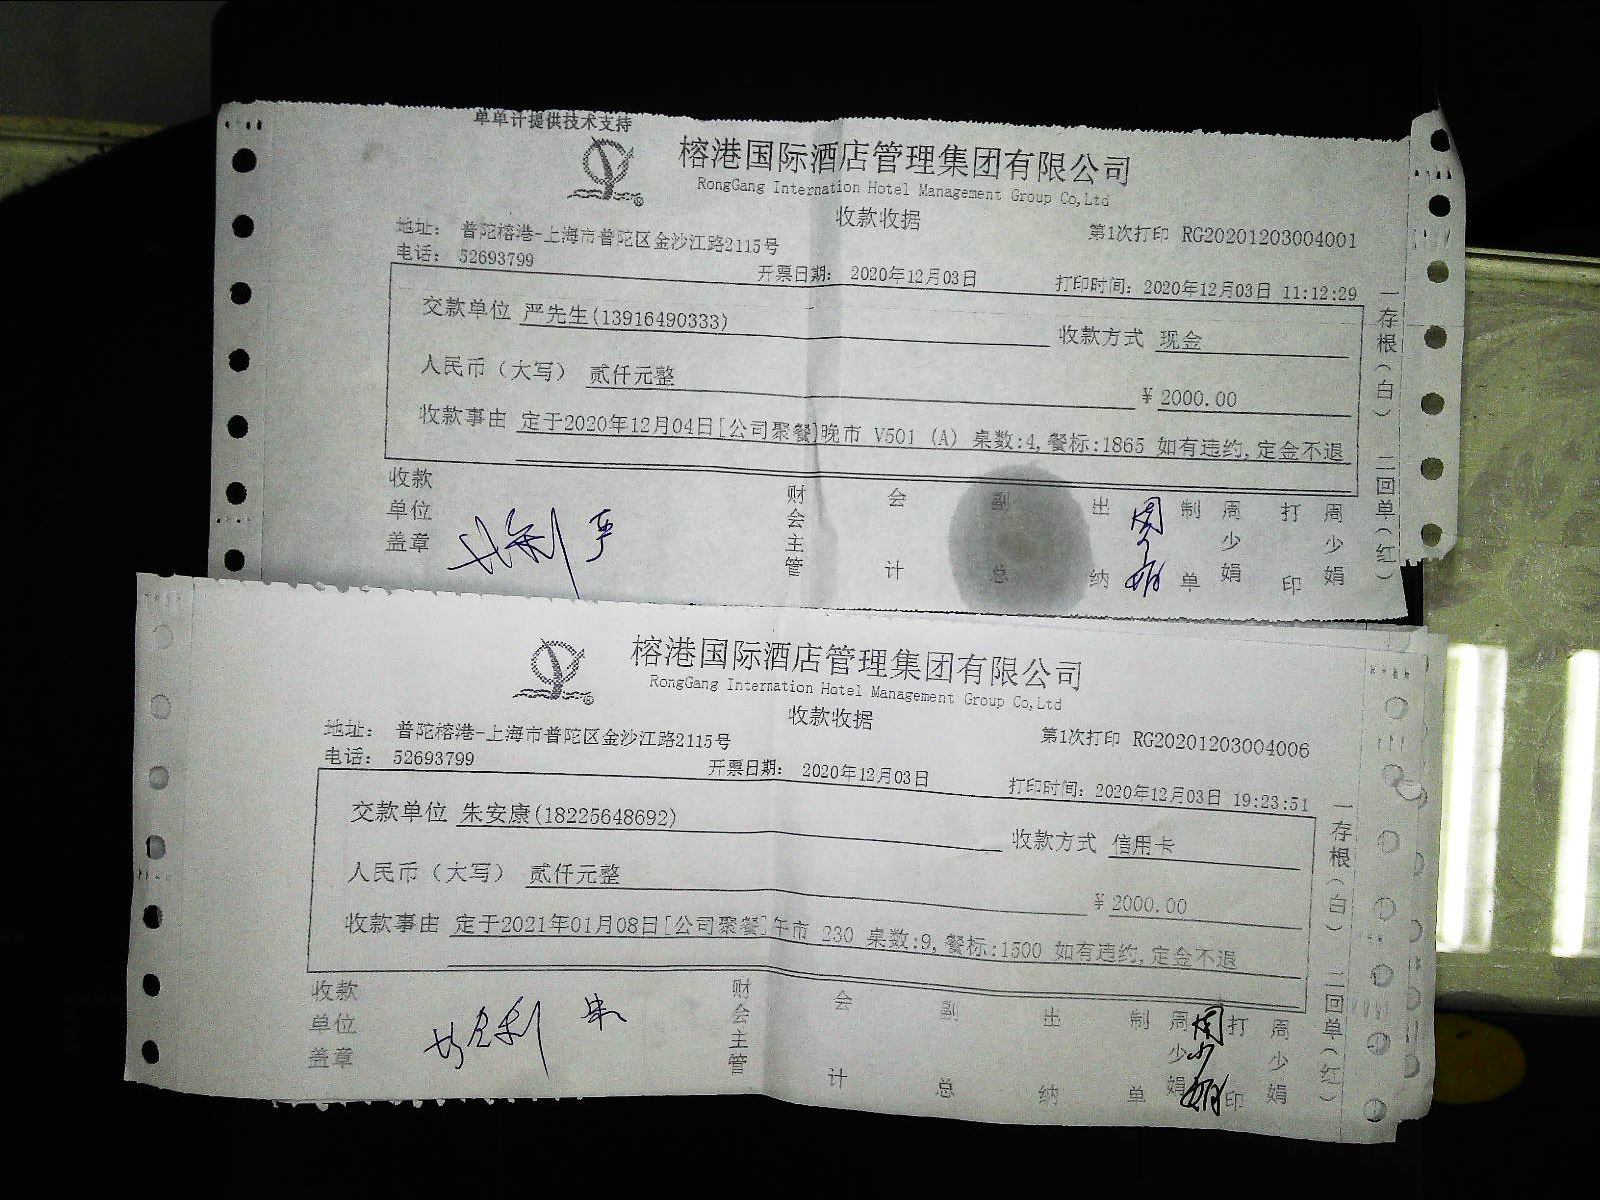 单单计提供技术支持
榕港国际酒店管理集团有限公司
RongGang Internation Hotel Management Group Co,Ltd
收款收据
地址： 普陀榕港-上海市普陀区金沙江路2115号
第1次打印 RG20201203004001
电话： 52693799
开票日期： 2020年12月03日
打印时间：2020年12月03日 11:12:29
交款单位 严先生(13916490333)
收款方式 现金
人民币（大写） 贰仟元整
¥ 2000.00
收款事由 定于2020年12月04日[公司聚餐]晚市 V501 (A) 桌数:4,餐标:1865 如有违约,定金不退
收款单位盖章
严
财会主管
会计
副总
出纳
周少娟
制单
周少娟
打印
周少娟
一存根(白) 二回单(红)
榕港国际酒店管理集团有限公司
RongGang Internation Hotel Management Group Co,Ltd
收款收据
地址： 普陀榕港-上海市普陀区金沙江路2115号
第1次打印 RG20201203004006
电话： 52693799
开票日期： 2020年12月03日
打印时间：2020年12月03日 19:23:51
交款单位 朱安康(18225648692)
收款方式 信用卡
人民币（大写） 贰仟元整
¥ 2000.00
收款事由 定于2021年01月08日[公司聚餐]午市 230 桌数:9,餐标:1500 如有违约,定金不退
收款单位盖章
朱
财会主管
会计
副总
出纳
制单
周少娟
周少娟
打印
周少娟
一存根(白) 二回单(红)